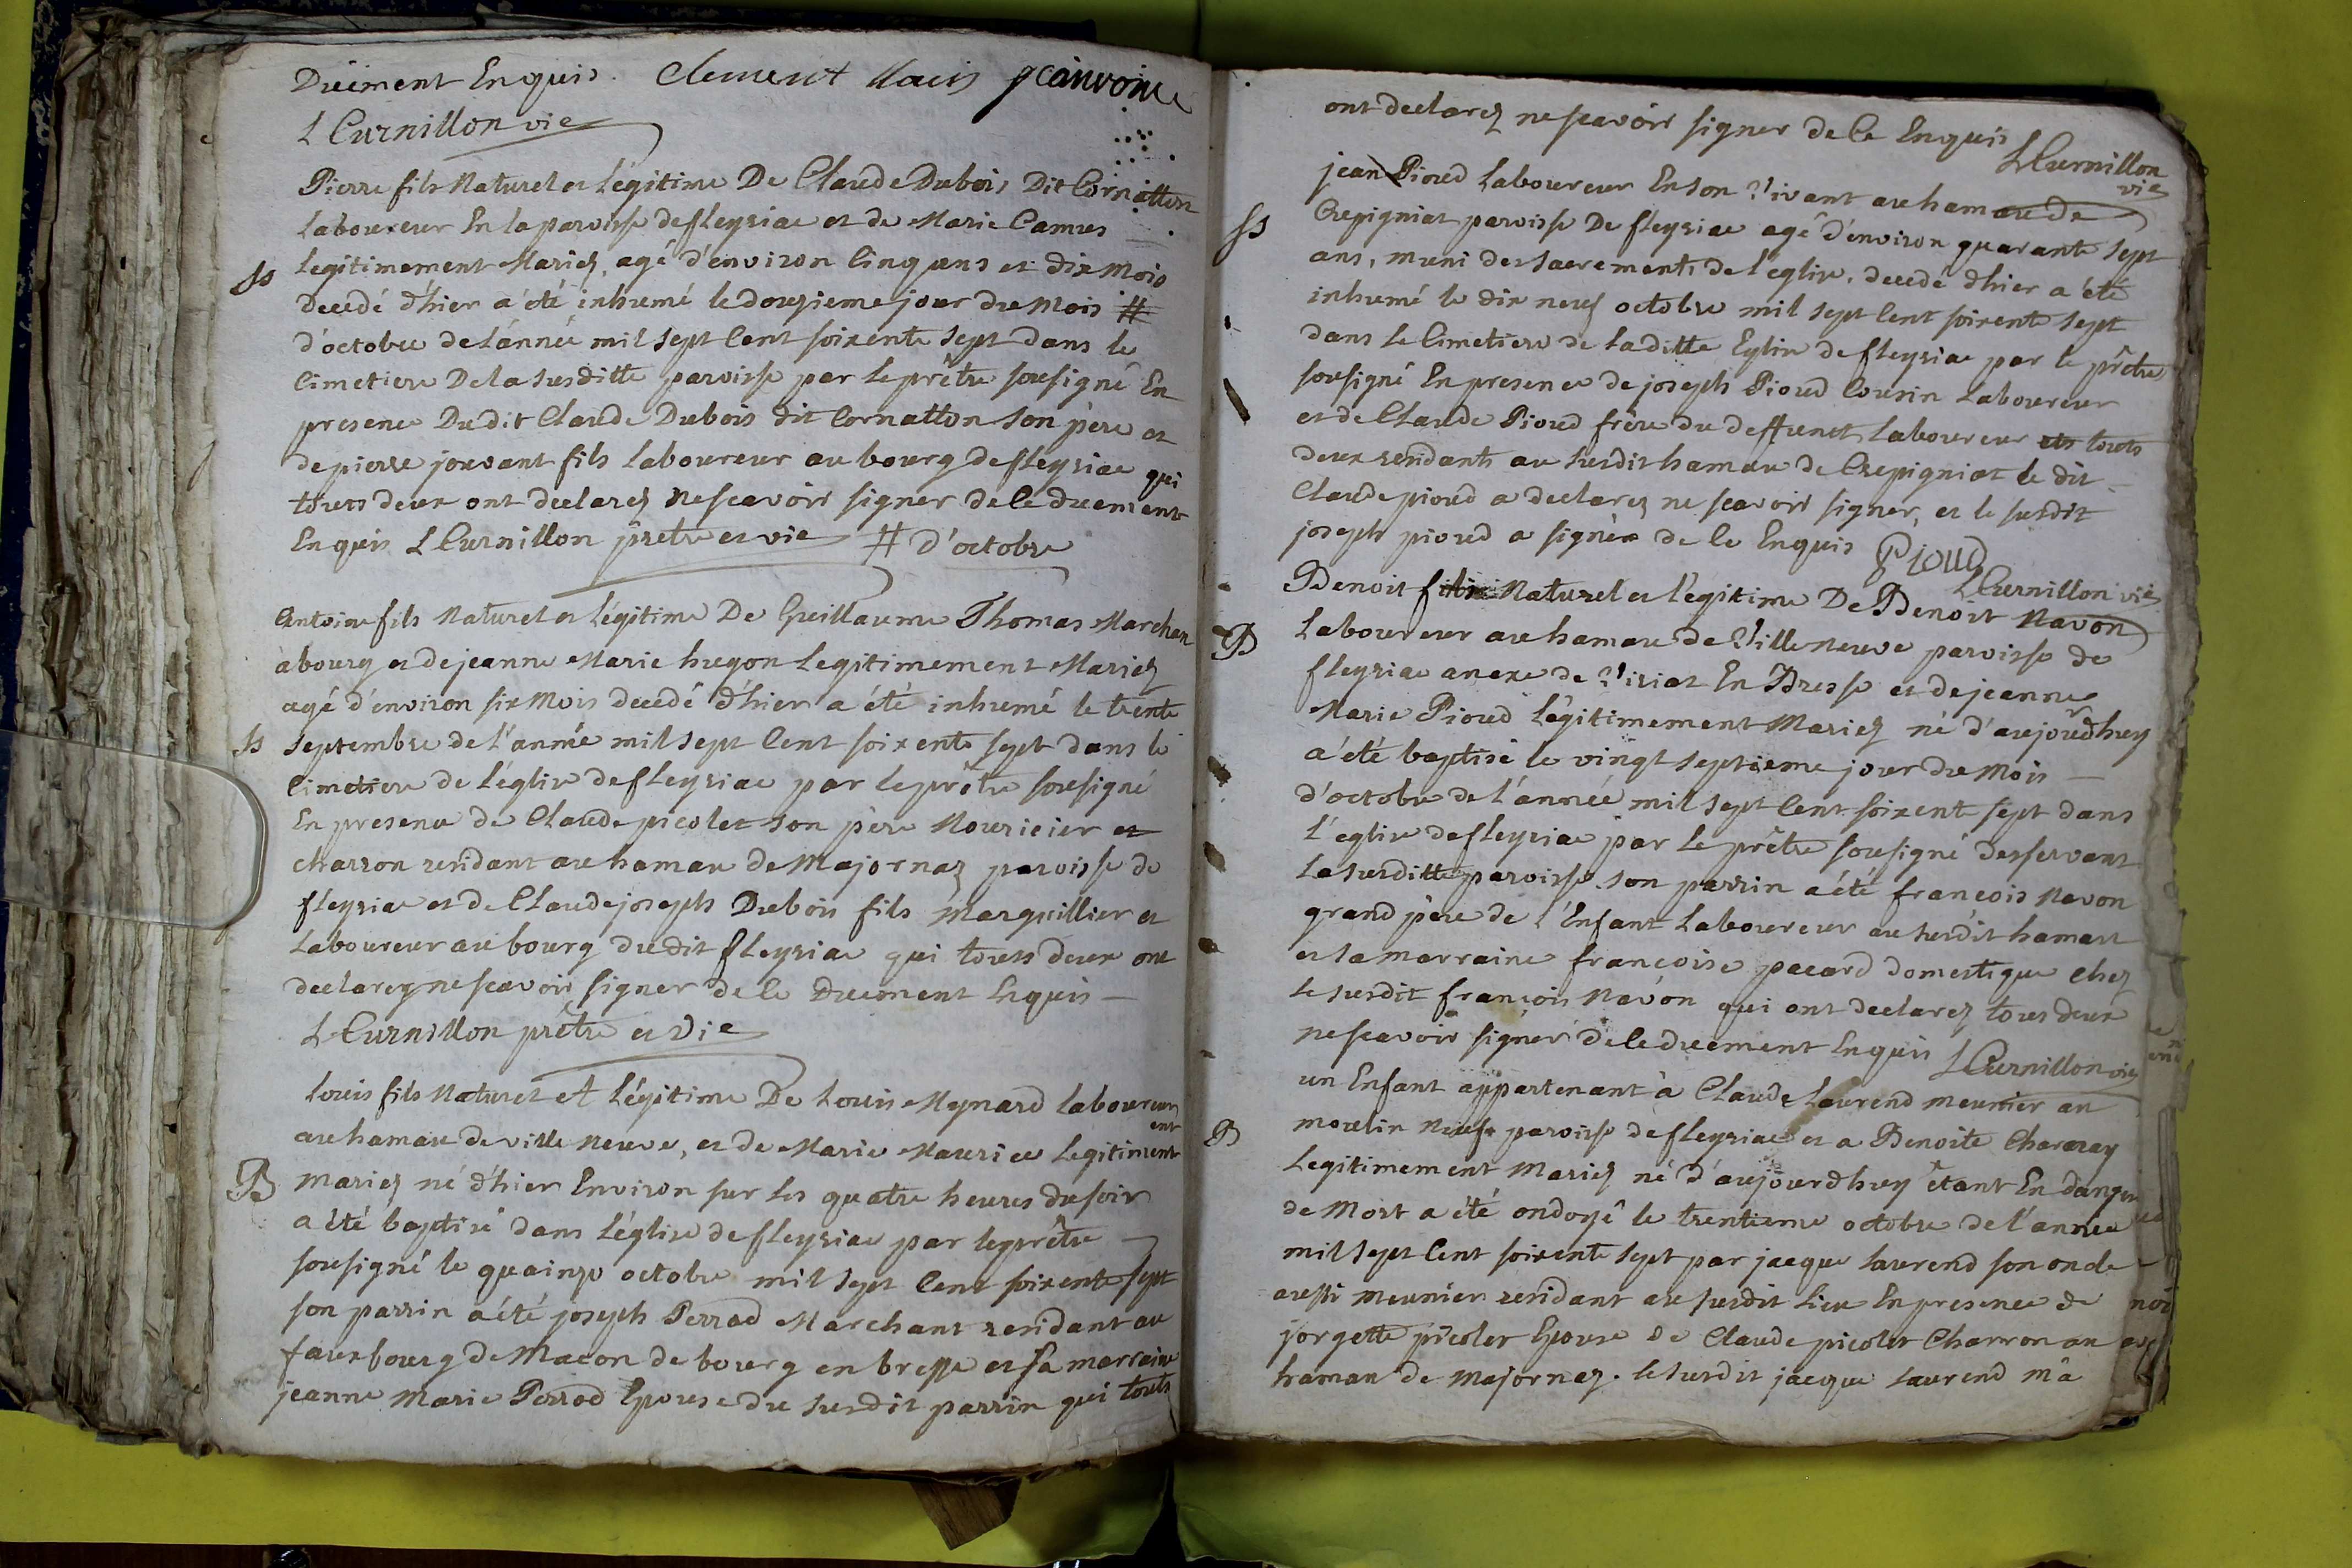 Duëment Enquis. Clement Maris jeanvoine
L Curnillon vie
Pierre fils Naturel et Légitime De Claude Dubois Dit Cornatton
Laboureur En la paroisse de fleyriac et de Marie Camus
Legitimement Mariez, agé d'environ Cinq ans et dix Mois
decedé d'hier a été inhumé le douzieme jour du Mois #
d'octobre de L'année mil sept Cent soixente sept dans le
Cimetiere De la susditte paroisse par le prêtre sousigné En
presence Dudit Claude Dubois dit Cornatton son père et
de pierre jouvant fils laboureur au bourg de fleyriac qui
touts deux ont declarez ne scavoir signer de Ce duement
Enquis L Curnillon prêtre et vie # d'octobre
Antoine fils Naturel et Légitime De Guillaume Thomas Marchan
a bourg et de jeanne Marie hugon Legitimement Mariez
agé d'environ six Mois decedé d'hier a été inhumé le trente
ss septembre de l'année mil sept Cent soixente sept dans le
Cimetiere de l'église de fleyriac par le prêtre sousigné
En presence de Claude picolet son père Nouricier et
charron residant au hamau de Majornaz paroisse de
fleyriac et de Claude joseph Dubois fils Marguillier et
Laboureur au bourg dudit fleyriac qui touts deux ont
declarez ne scavoir signer de Ce Duement Enquis
L Curnillon prêtre et vie
Louis fils Naturel et Légitime De Louis Meynard laboureur
au hamau de ville neuve, et de Marie Maurice Legitiment
ent
B mariez né d'hier Environ sur les quatre heures du soir
a été baptisé dans l'église de fleyriac par le prêtre
sousigné le quainze octobre mil sept Cent soixente sept
son parrin a été joseph Perrod Marchant residant au
fauxbourg de Macon de bourg en bresse et sa marraine
jeanne Marie Perrod Epouse du susdit parrin qui touts
ont declarez ne scavoir signer de Ce Enquis
L Curnillon
vie
jean Pioud Laboureur En son Vivant au hamau de
ss Crepigniat paroisse De fleyriac agé d'environ quarante sept
ans, muni des sacrements de l'église, decedé d'hier a été
inhumé le dix neuf octobre mil sept Cent soixente sept
dans Le Cimetiere de laditte Eglise de fleyriac par le prêtre
sousigné En presence de joseph Pioud Cousin Laboureur
et de Claude Pioud frère du deffunct Laboureur touts
deux residants au susdit hamau de Crepigniat le dit
Claude pioud a declarez ne scavoir signer, et le susdit
joseph pioud a signér de Ce Enquis Pioud
L Curnillon vie
Benoit fils Naturel et légitime De Benoit Navon
B Laboureur au hamau de Villeneuve paroisse de
fleyriac anexe de Viriat En Bresse et de jeanne
Marie Pioud Légitimement Mariez né d'aujourdhuy
a été baptisé le vingt septieme jour du Mois
d'octobre de l'année mil sept Cent soixent sept dans
l'eglise de fleyriac par le prêtre sousigné desservant
La susditte paroisse. son parrin a été francois Navon
grand père de l'Enfant Laboureur au susdit hamau
et la marraine francoise pacard domestique chez
le susdit françois Navon qui ont declarez tous deux
ne scavoir signer de Ce duement Enquis L Curnillon vie
un Enfant appartenant à Claude Laurend meunier au
B moulin Neuf paroisse de fleyriac et a Benoite Charnay
Legitimement Mariez né d'aujourdhuy étant En danger
de Mort a été ondoyé le trentieme octobre de l'année
mil sept Cent soixente sept par jacque Laurend son oncle
aussi meunier residant au susdit lieu En presence de
jorgette picolet Epouse de Claude picolet Charron au
hamau de Majornaz. le susdit jacque Laurend m'a